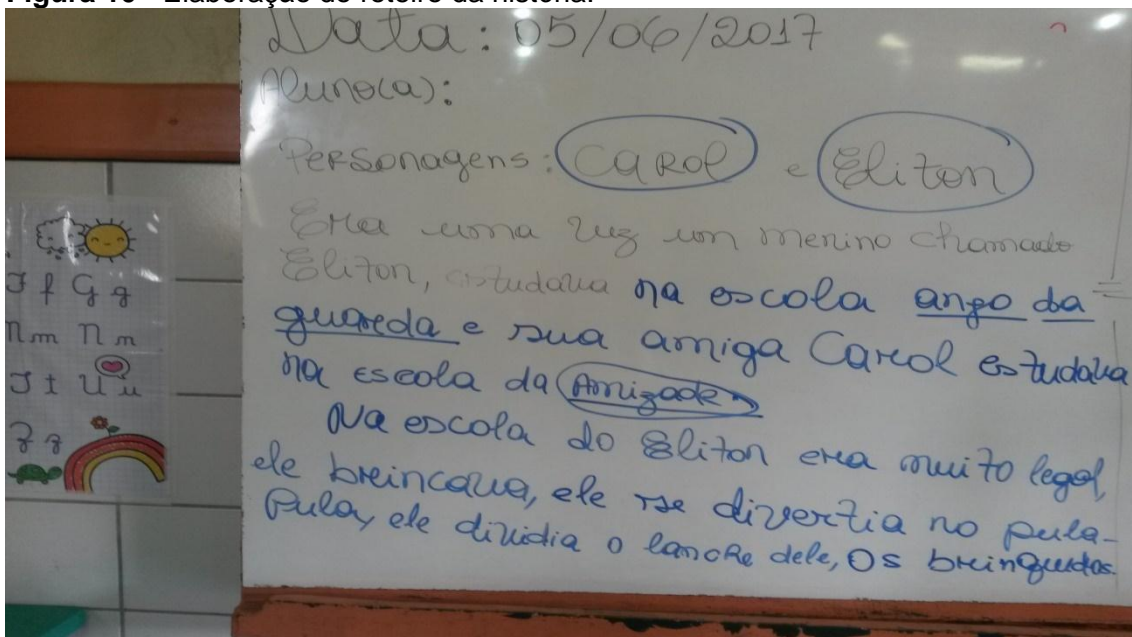 Figura 10 - Elaboração do roteiro da história.
Data: 05/06/2017
Aluno(a):
Personagens: Carol e Eliton
Era uma vez um menino chamado
Eliton, estudava na escola anjo da
guarda e sua amiga Carol estudava
na escola da Amizade
Na escola do Eliton era muito legal,
ele brincava, ele se divertia no pula-
Pula, ele dividia o lanche dele, Os brinquedos.
F f G g
M m N n
T t U u
Z z